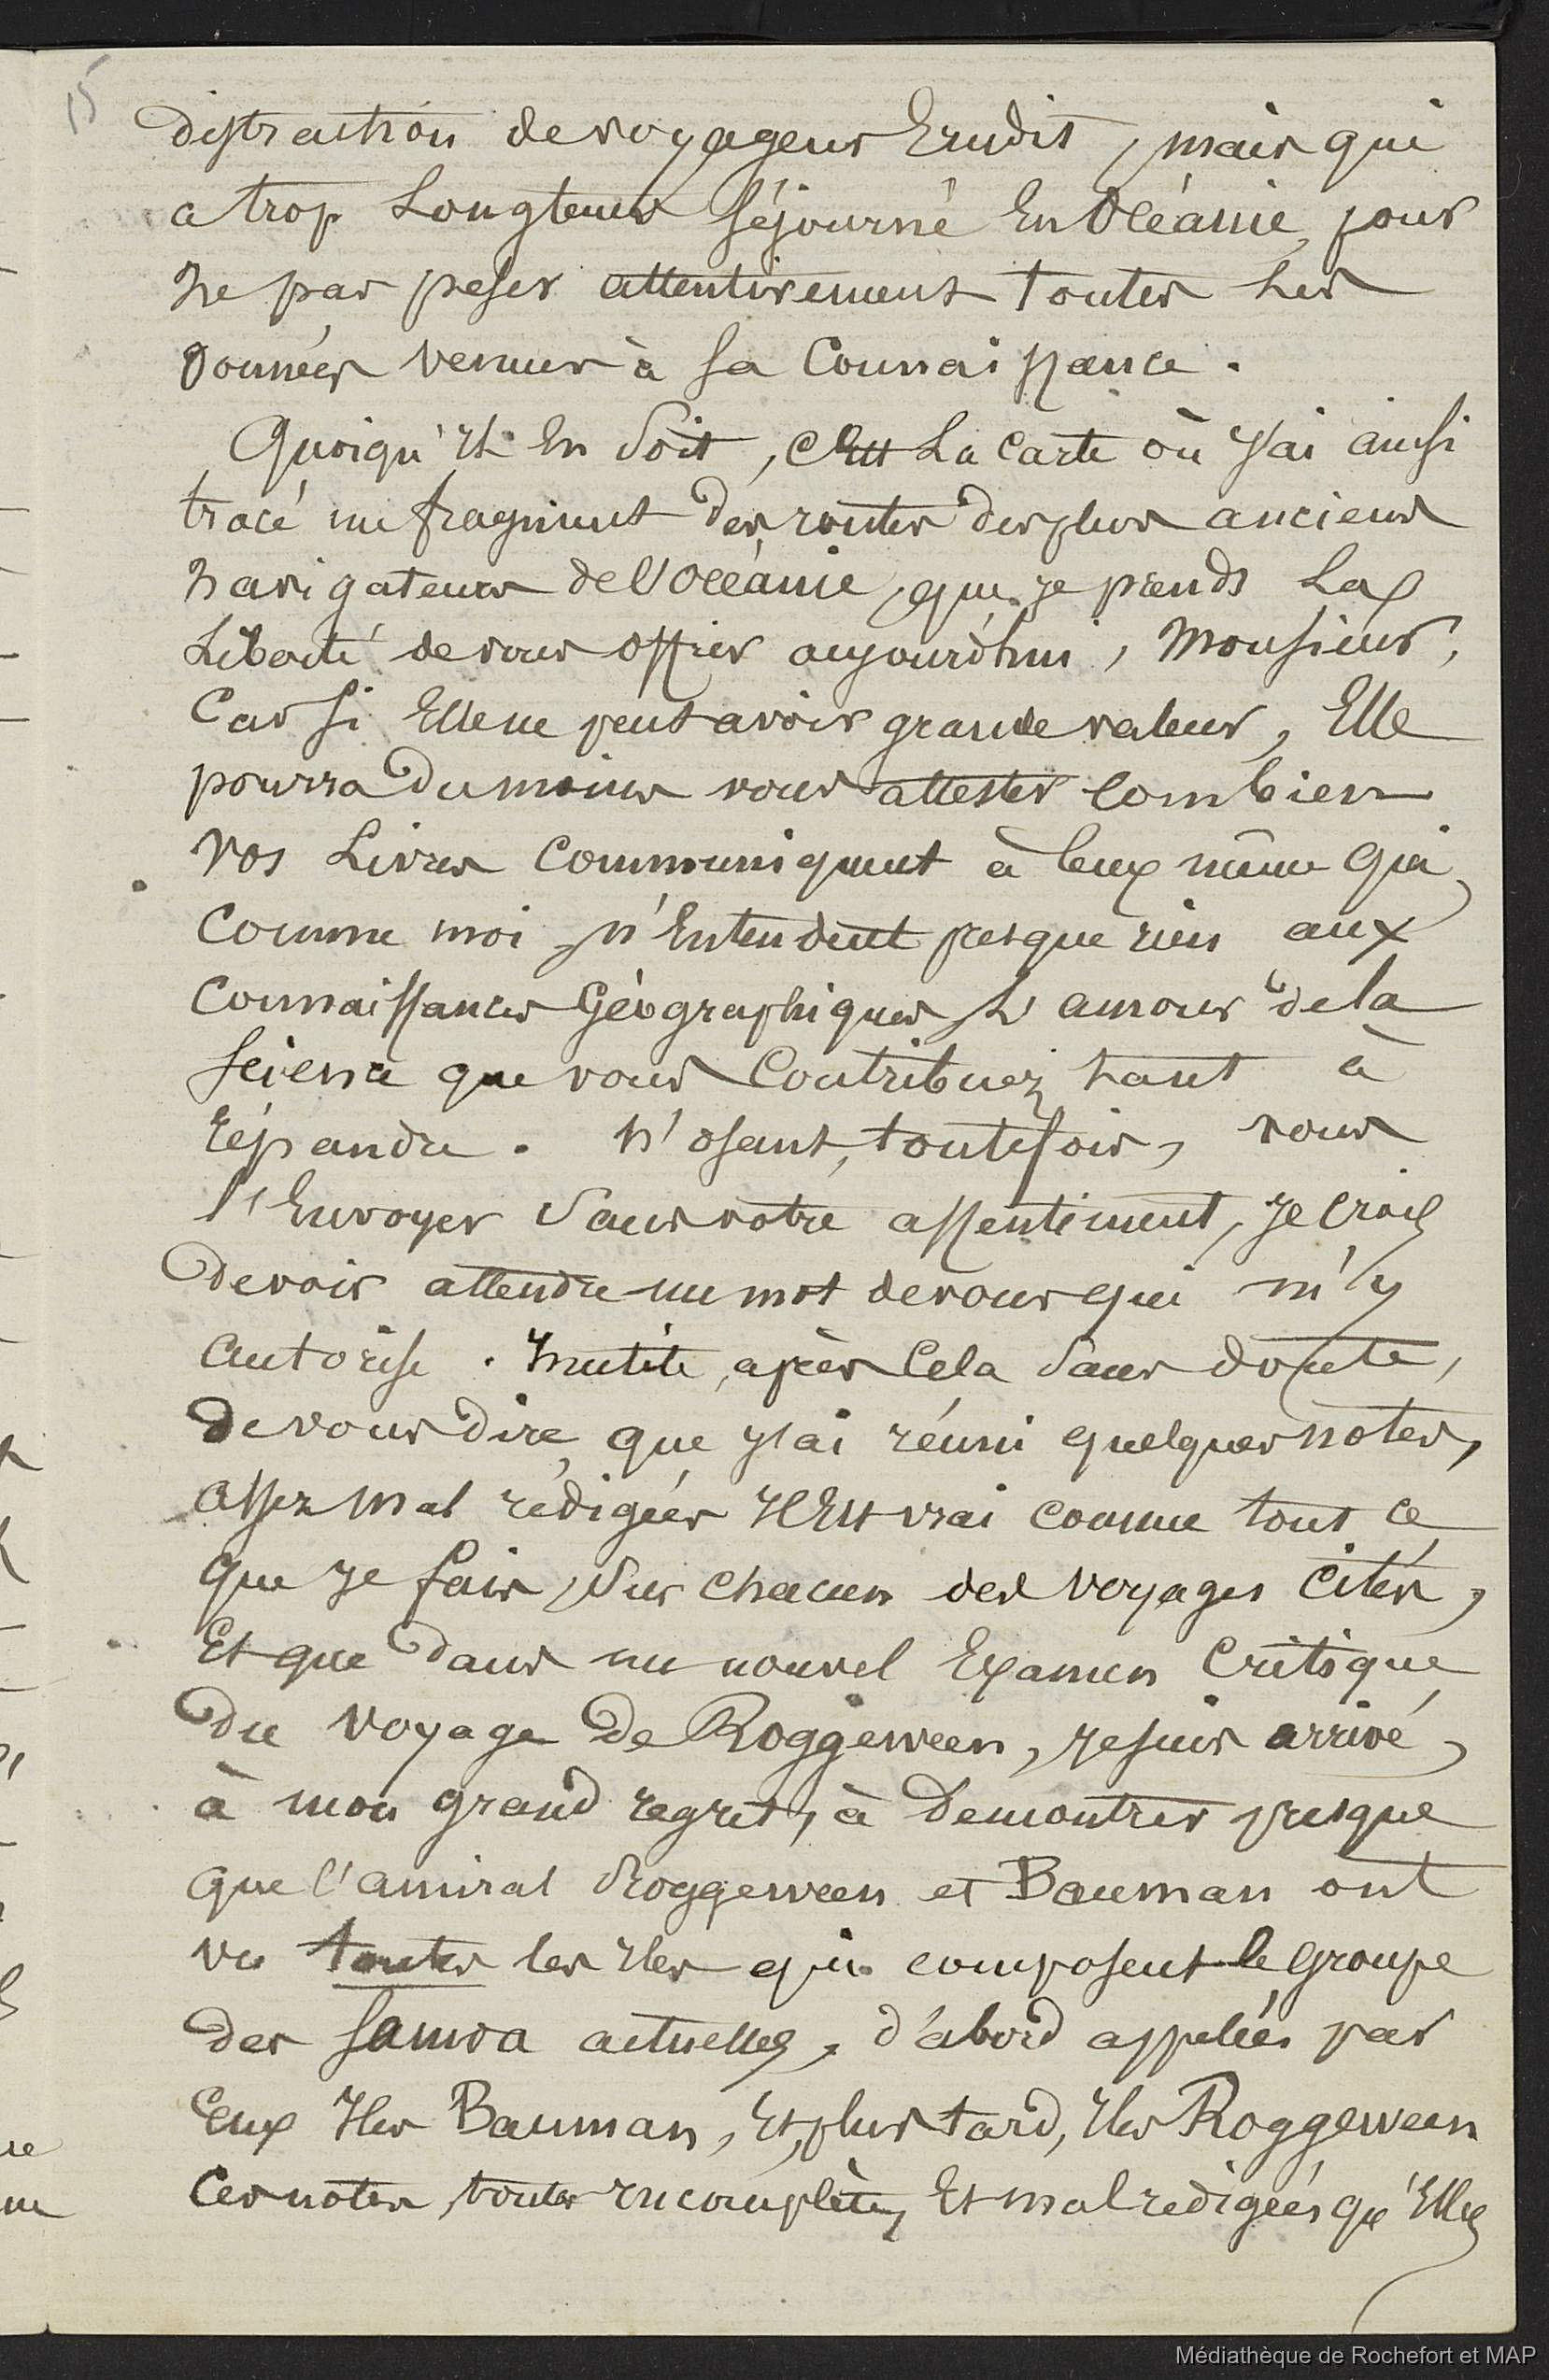 15
distraction de voyageur Erudit, mais qui
a trop Longtemps séjourné En Océanie, pour
ne pas peser attentivement toutes Les
données venues à sa Connaissance.
Quoiqu'il En Soit, c'Est La Carte où j'ai aussi
tracé un fragment des routes des plus anciens
navigateurs de l'Océanie, que je prends La
Liberté de vous offrir aujourd'hui, Monsieur,
Car si Elle ne peut avoir grande valeur, Elle
pourra du moins vous attester Combien
vos Livres Communiquent à Ceux même qui,
Comme moi n'Entendent presque rien aux
Connaissances Géographiques L'amour de la
Science que vous Contribuez tant à
répandre. N'osant, toutefois, vous
l'Envoyer Sans votre assentiment, je Crois
devoir attendre un mot de vous qui m'y
autorise. Inutile, après Cela Sans doute,
de vous dire, que j'ai réuni quelques notes,
assez mal rédigées il Est vrai comme tout ce
que je fais, Sur chacun des voyages cités,
Et que dans un nouvel Examen Critique
du voyage de Roggeween, je suis arrivé,
à mon grand regret, à demontrer presque
que l'amiral Roggeween et Bauman ont
vu toutes les iles qui composent le groupe
des Samoa actuelles, d'abord appelées par
Eux Iles Bauman, Et, plus tard, Iles Roggeween
Ces notes, toutes incomplètes, Et mal redigées qu'Elles
Médiathèque de Rochefort et MAP